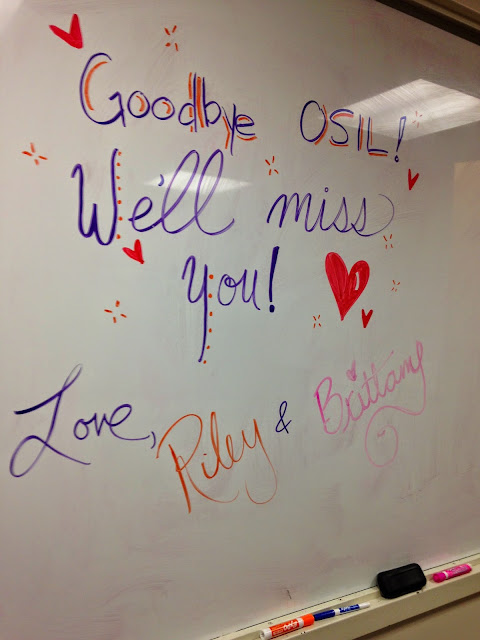 Goodbye OSIL!
We'll miss
you!
Love, Riley & Brittany